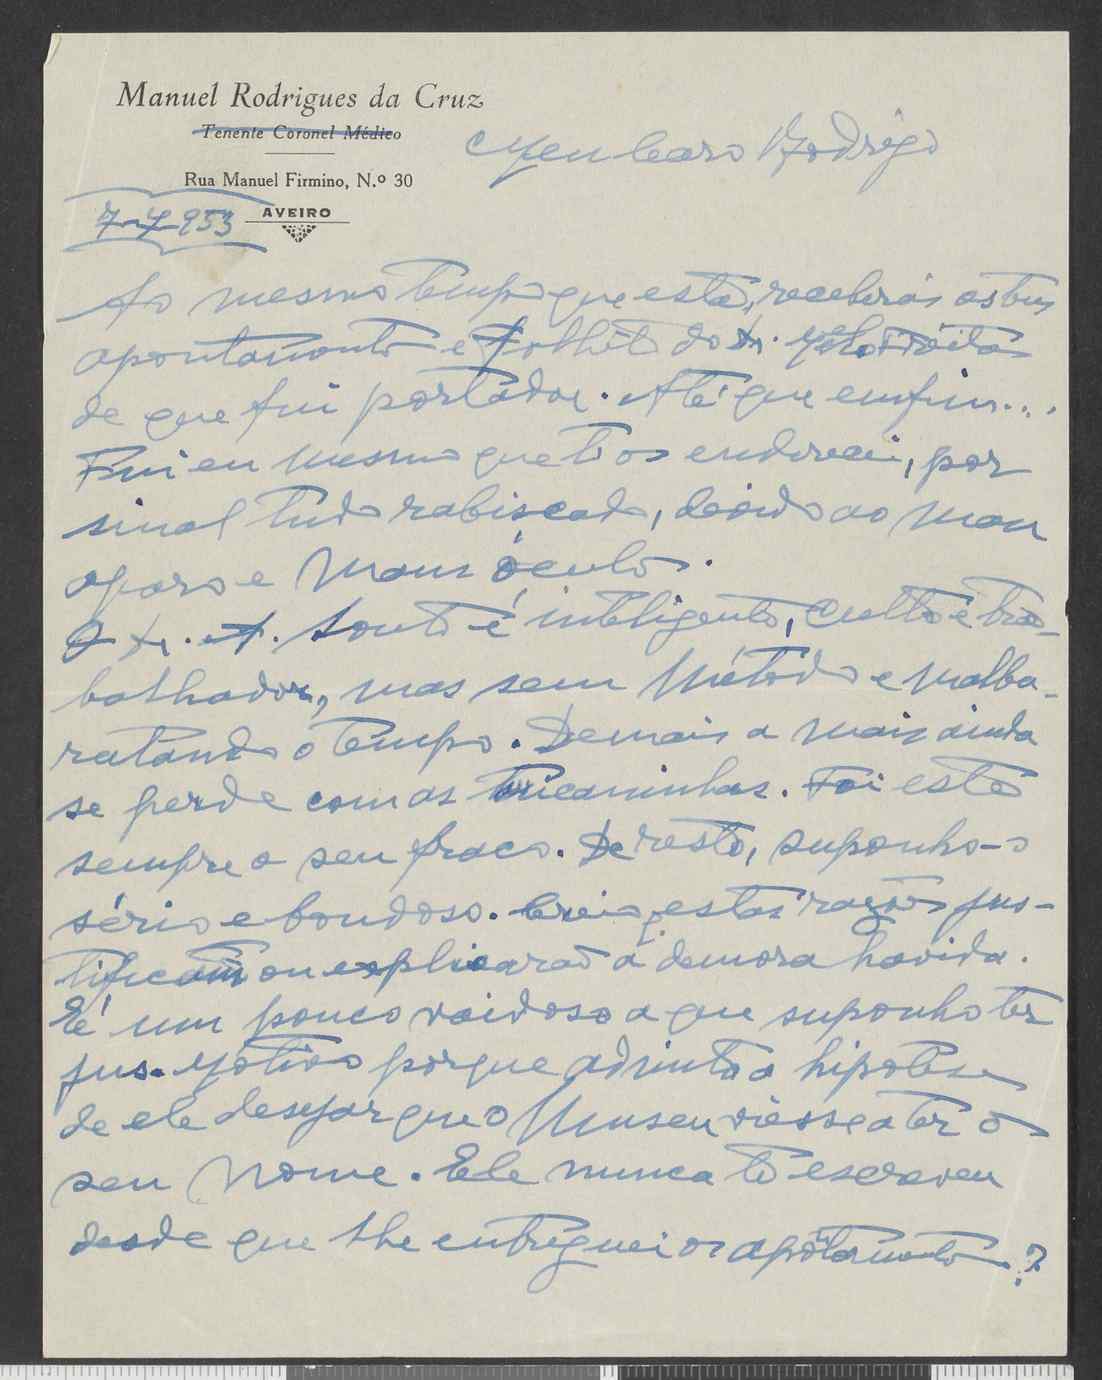 Manuel Rodrigues da Cruz
Tenente Coronel Médico
Rua Manuel Firmino, N.º 30
AVEIRO
Meu Caro Rodrigo
7-7-953
Ao mesmo tempo que esta, receberás os teus
apontamentos e folheto do Dr.
de que fui portador. Até que emfim...
Fui eu mesmo que tos enderecei, por
sinal tudo rabiscado, devido ao mau
aparo e maus óculos.
O Dr. A. Souto é inteligente, culto e tra-
balhador, mas sem método e malba-
ratando o tempo. Demais a mais ainda
se perde com as tricaninhas. Foi este
sempre o seu fraco. De resto, suponho-o
sério e bondoso. Creio q. estas razões jus-
tificam ou explicarão a demora havida.
É um pouco vaidoso a que suponho ter
jus. Motivo porque admito a hipótese
de ele desejar que o Museu viesse a ter o
seu nome. Ele nunca te escreveu
desde que lhe entreguei os apontamentos?